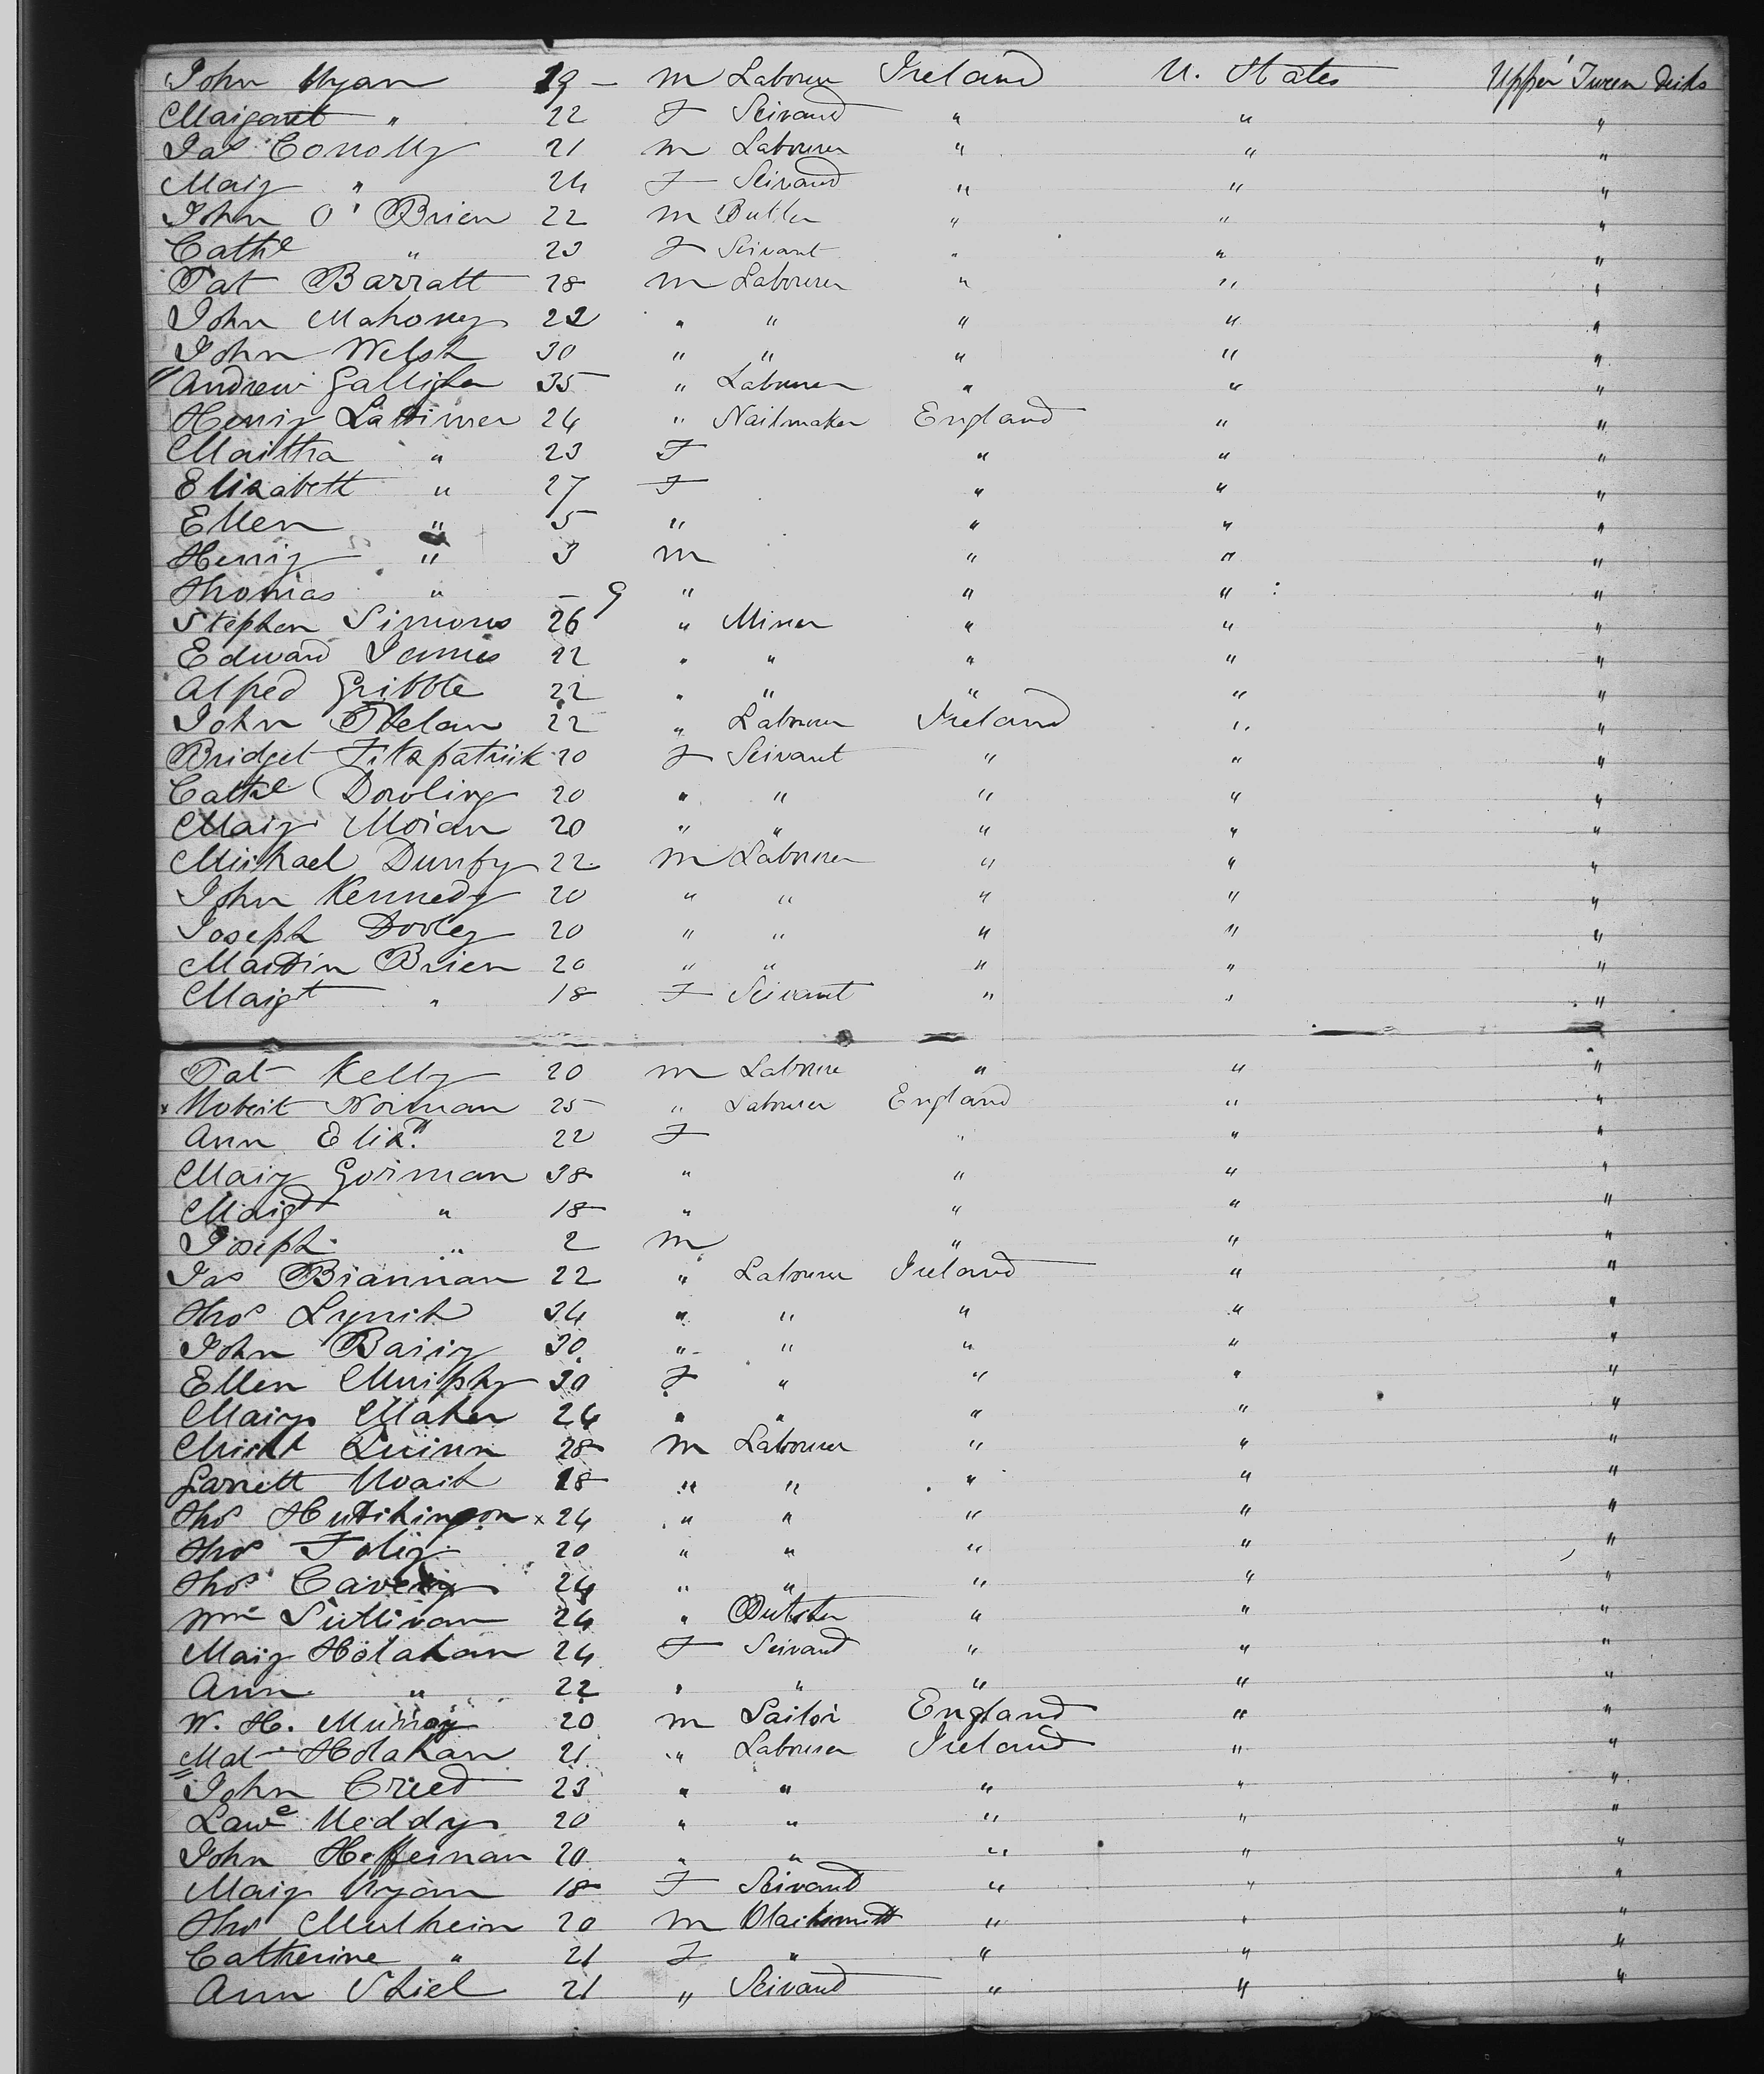 John Ryan 19 — m Labourer Ireland U. States Upper Tween decks
Margaret " 22 F Servand " " "
Jas Conolly 21 m Labourer " " "
Mary " 24 F Servand " " "
John O'Brien 22 m Butler " " "
Cathe " 23 F Servant " " "
Pat Barratt 28 m Labourer " " "
John Mahoney 22 " " " " "
John Welsh 30 " " " " "
Andrew Galligher 35 " Labourer " " "
Henry Latimer 24 " Nailmaker England " "
Martha " 23 F " " "
Elizabeth " 27 F " " "
Ellen " 5 " " " "
Henry " 3 m " " "
Thomas " — 9 " " " "
Stephen Simons 26 " Miner " " "
Edward James 22 " " " " "
Alfred Gribble 22 " " " " "
John Phelan 22 " Labourer Ireland " "
Bridget Fitzpatrick 20 F Servant " " "
Cathe Dowling 20 " " " " "
Mary Moran 20 " " " " "
Michael Dunfy 22 m Labourer " " "
John Kennedy 20 " " " " "
Joseph Dooley 20 " " " " "
Martin Brien 20 " " " " "
Margt " 18 F Servant " " "
Pat Kelly 20 m Laborer " " "
x Robert Norman 25 " Labourer England " "
Ann Elizth 22 F " " "
Mary Gorman 38 " " " "
Margt " 18 " " " "
Joseph " 2 m " " "
Jas Brannan 22 " Labourer Ireland " "
Thos Lynch 34 " " " " "
John Barry 30 " " " " "
Ellen Murphy 30 F " " " "
Mary Maher 24 " " " " "
Michl Quinn 28 m Labourer " " "
Garrett Roach 18 " " " " "
Thos Hutchinson x 24 " " " " "
Thos Foley 20 " " " " "
Thos 24 " " " " "
Wm Sullivan 24 " Butcher " " "
Mary Holahan 24 F Servand " " "
Ann " 22 " " " " "
W. H. Murray 20 m Sailor England " "
Mat Holahan 21 " Labourer Ireland " "
John Creed 23 " " " " "
Lawe Reddy 20 " " " " "
John Heffernan 20 " " " " "
Mary Ryan 18 F Servand " " "
Thos Mulhern 20 m Blacksmith " " "
Catherine " 21 F " " " "
Ann Shiel 21 " Servand " " "